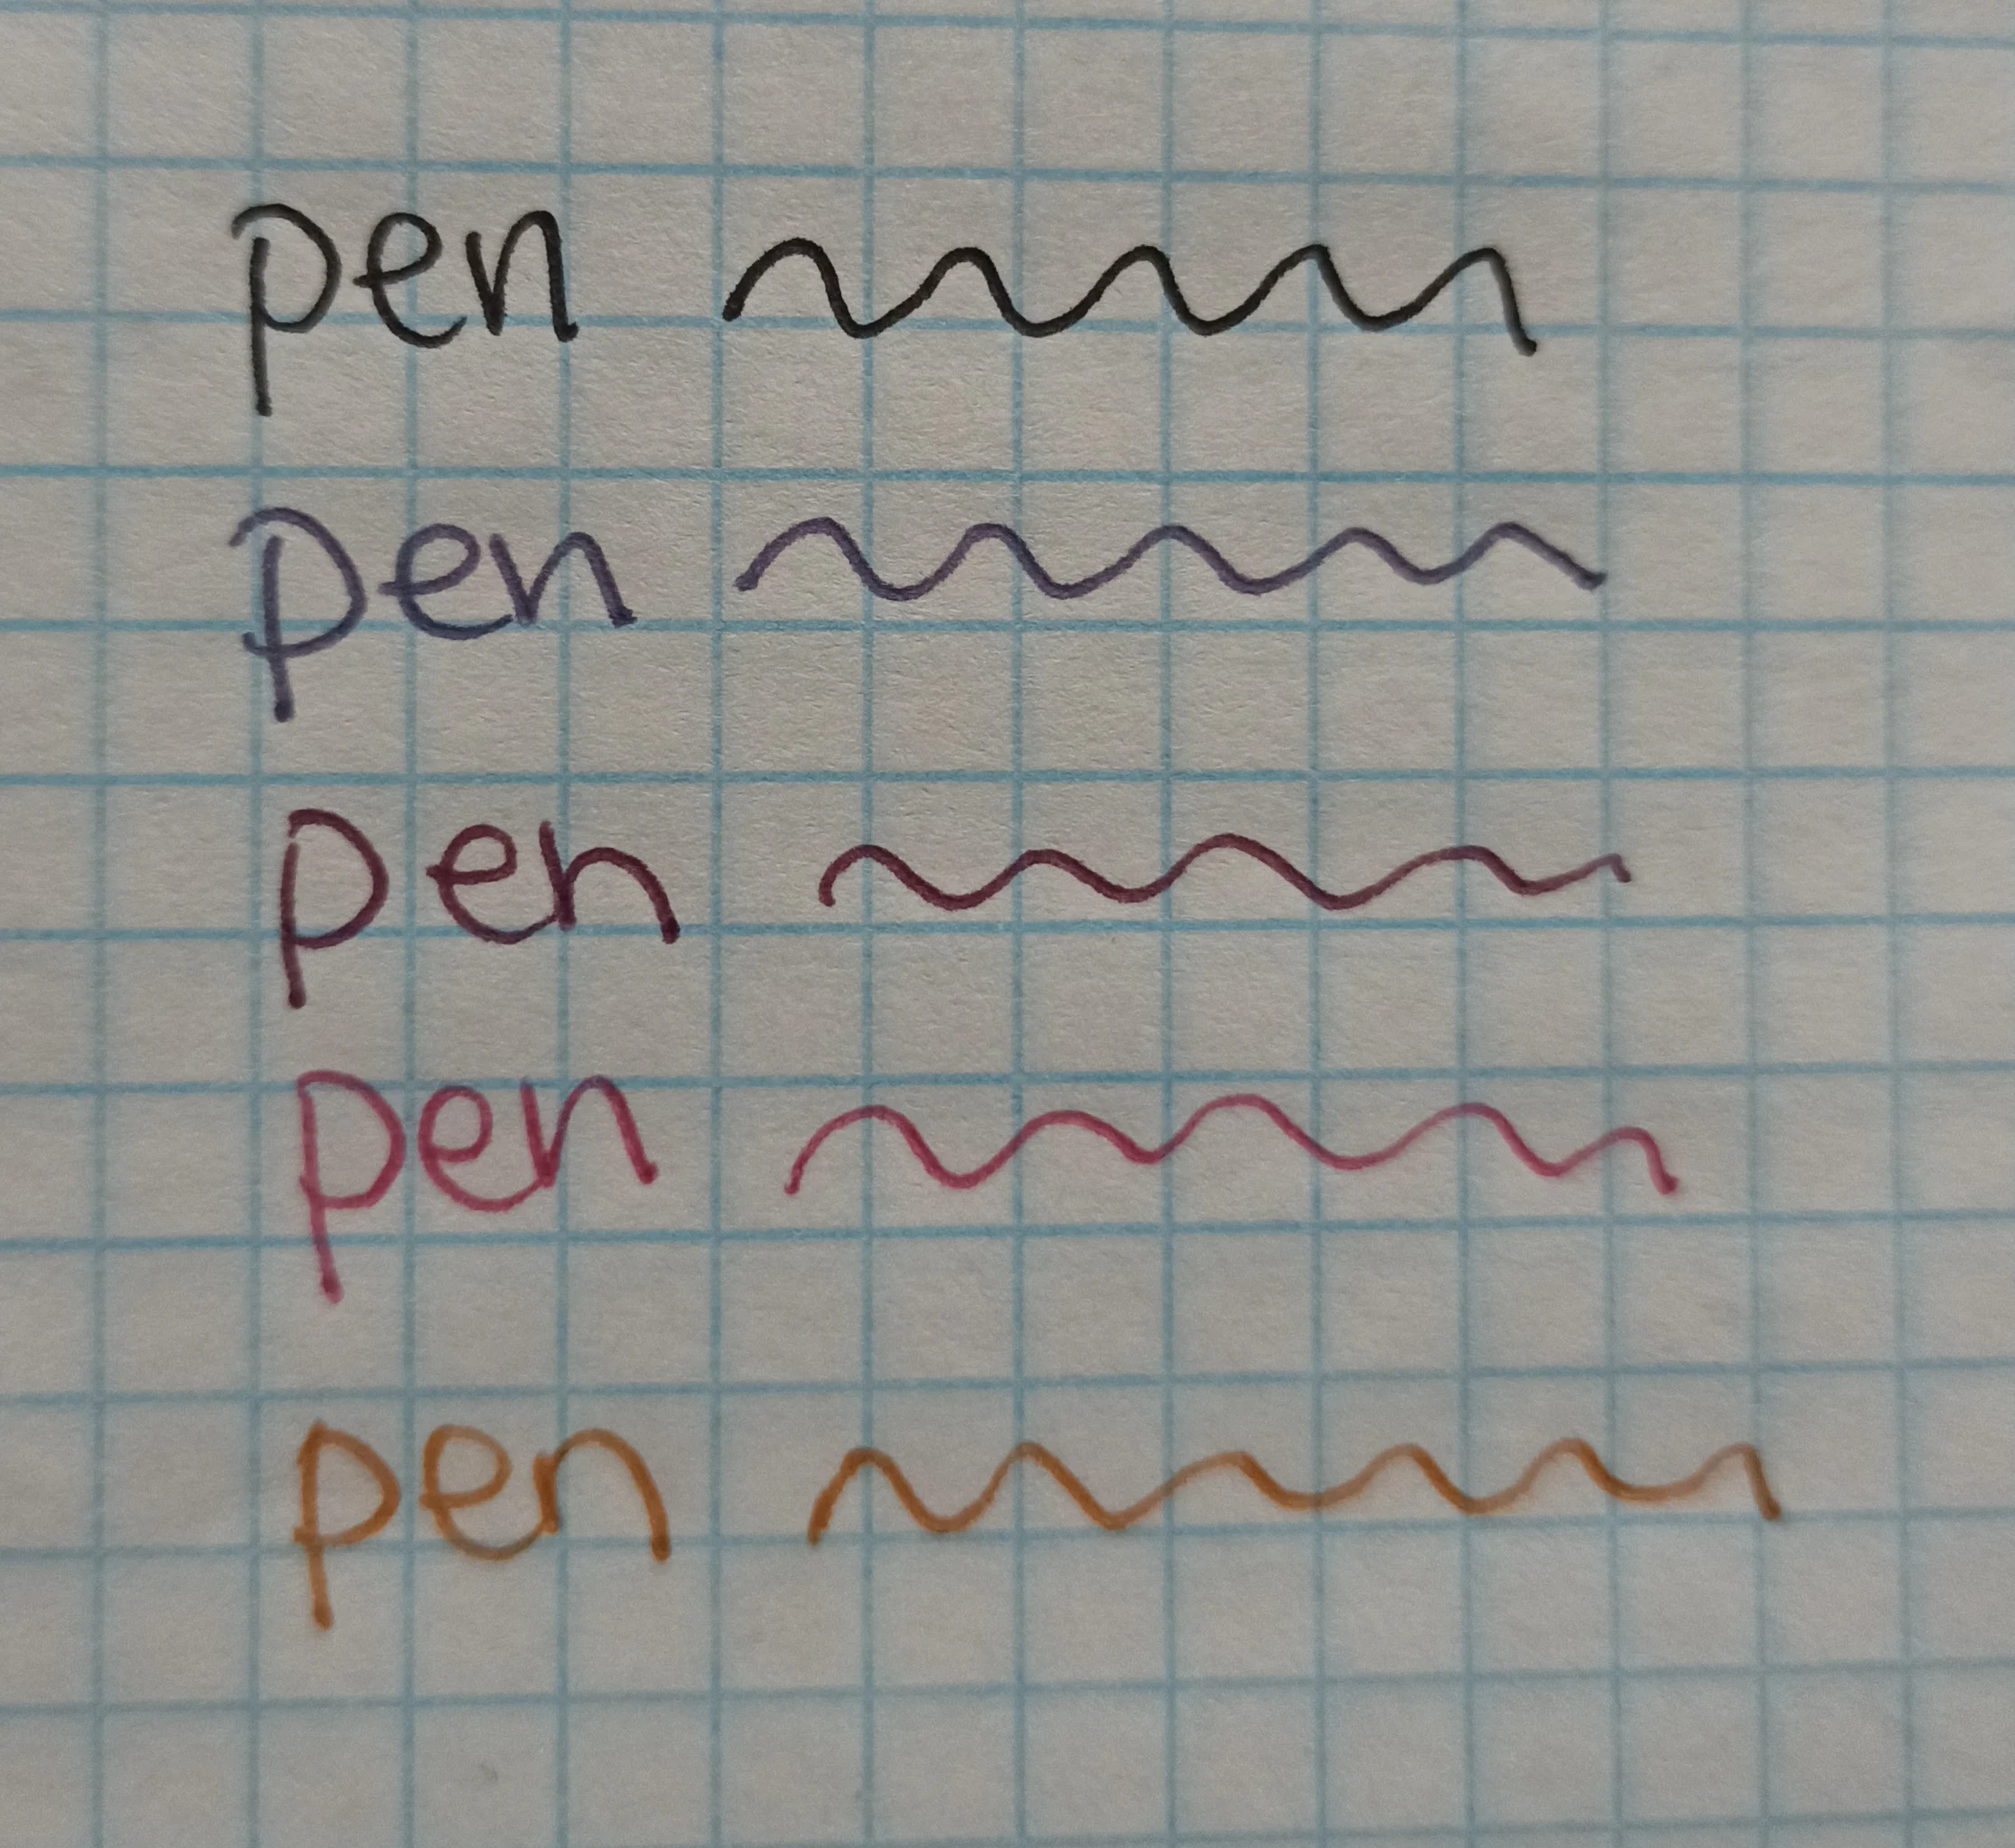 pen
pen
pen
pen
pen